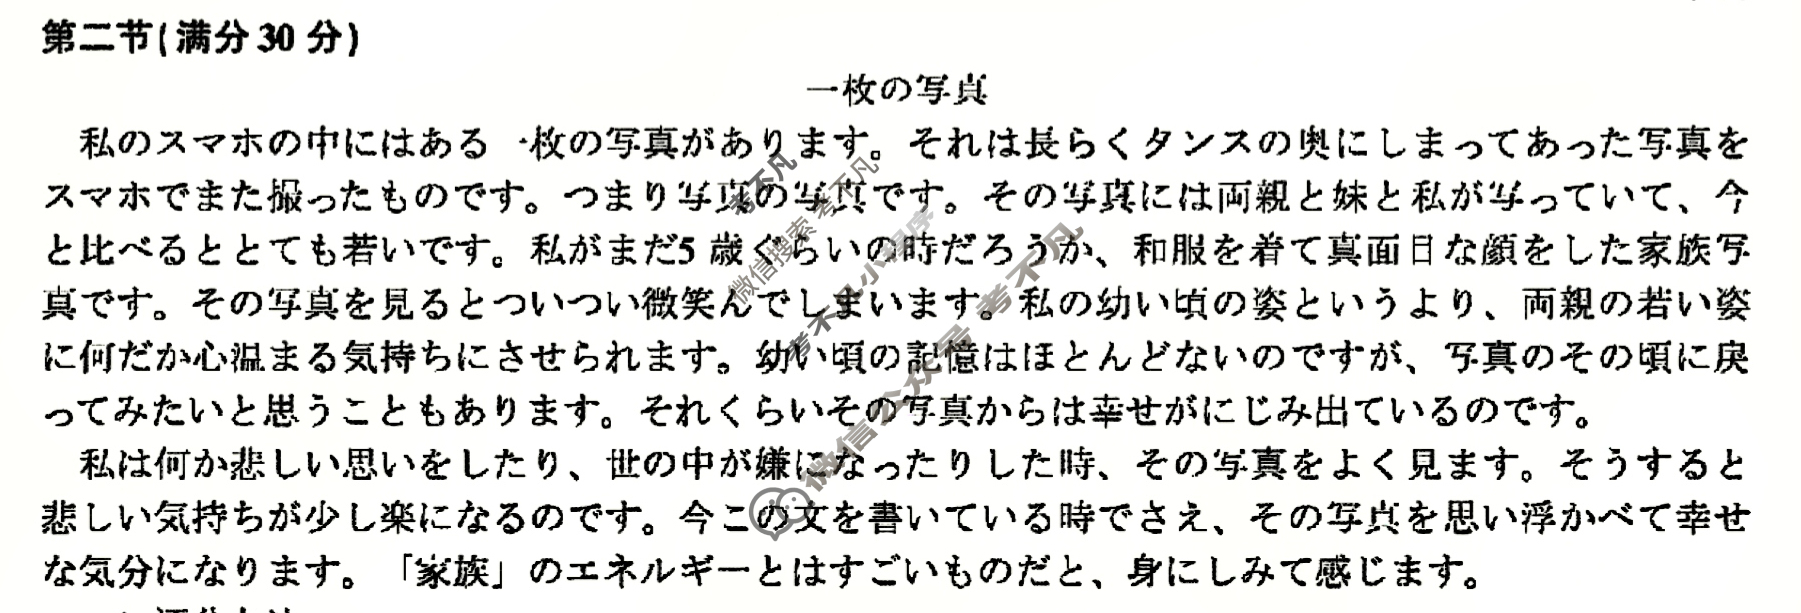 第二节(满分30分)
一枚の写真
私のスマホの中にはある一枚の写真があります。それは長らくタンスの奥にしまってあった写真を
スマホでまた撮ったものです。つまり写真の写真です。その写真には両親と妹と私が写っていて、今
と比べるととても若いです。私がまだ5歳ぐらいの時だろうか、和服を着て真面目な顔をした家族写
真です。その写真を見るとついつい微笑んでしまいます。私の幼い頃の姿というより、両親の若い姿
に何だか心温まる気持ちにさせられます。幼い頃の記憶はほとんどないのですが、写真のその頃に戻
ってみたいと思うこともあります。それくらいその写真からは幸せがにじみ出ているのです。
私は何か悲しい思いをしたり、世の中が嫌になったりした時、その写真をよく見ます。そうすると
悲しい気持ちが少し楽になるのです。今この文を書いている時でさえ、その写真を思い浮かべて幸せ
な気分になります。「家族」のエネルギーとはすごいものだと、身にしみて感じます。
考不凡
微信搜索 考不凡
考不凡小程序
微信公众号 考不凡